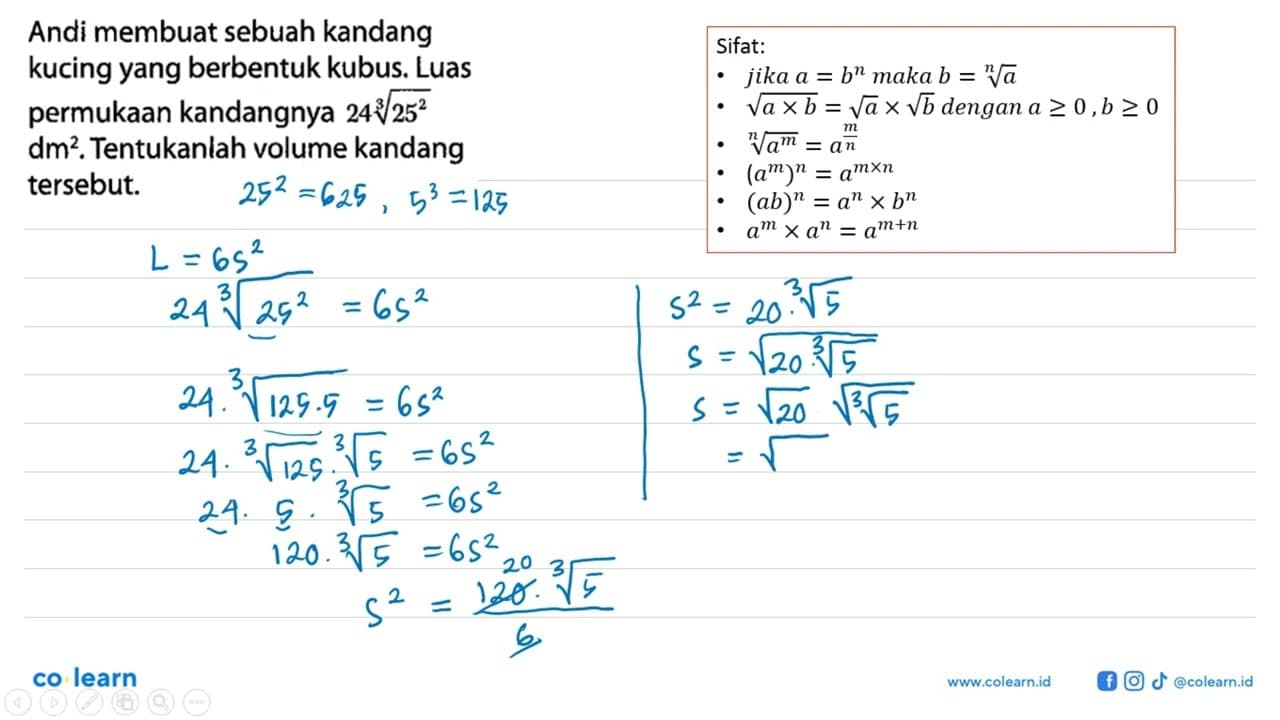 Andi membuat sebuah kandang
kucing yang berbentuk kubus. Luas
permukaan kandangnya 24∛25²
dm². Tentukanlah volume kandang
tersebut.
25² = 625 , 5³ = 125
L = 6s²
24 ∛25² = 6s²
24. ∛125.5 = 6s²
24. ∛125 . ∛5 = 6s²
24. 5. ∛5 = 6s²
120. ∛5 = 6s²
20
s² = 120. ∛5 / 6
s² = 20. ∛5
s = √(20.∛5)
s = √20 √(∛5)
= √
Sifat:
• jika a = bⁿ maka b = ⁿ√a
• √(a × b) = √a × √b dengan a ≥ 0 , b ≥ 0
• ⁿ√(aᵐ) = a^(m/n)
• (aᵐ)ⁿ = a^(m×n)
• (ab)ⁿ = aⁿ × bⁿ
• aᵐ × aⁿ = a^(m+n)
co·learn
www.colearn.id
@colearn.id